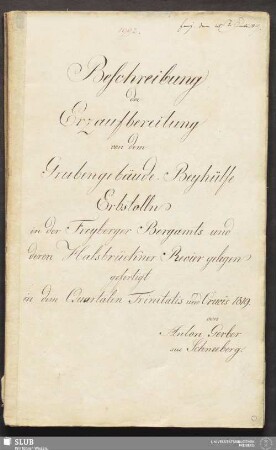 Beschreibung
der
Erzaufbereitung
von dem
Grubengebäude Beyhülfe
Erbstolln
in der Freyberger Bergamts und
deren Halsbrückner Revier gelegen
gefertigt
in den Quartalen Trinitatis und Crucis 1819
von
Anton Gerber
aus Schneeberg.
SLUB
Wir führen Wissen.